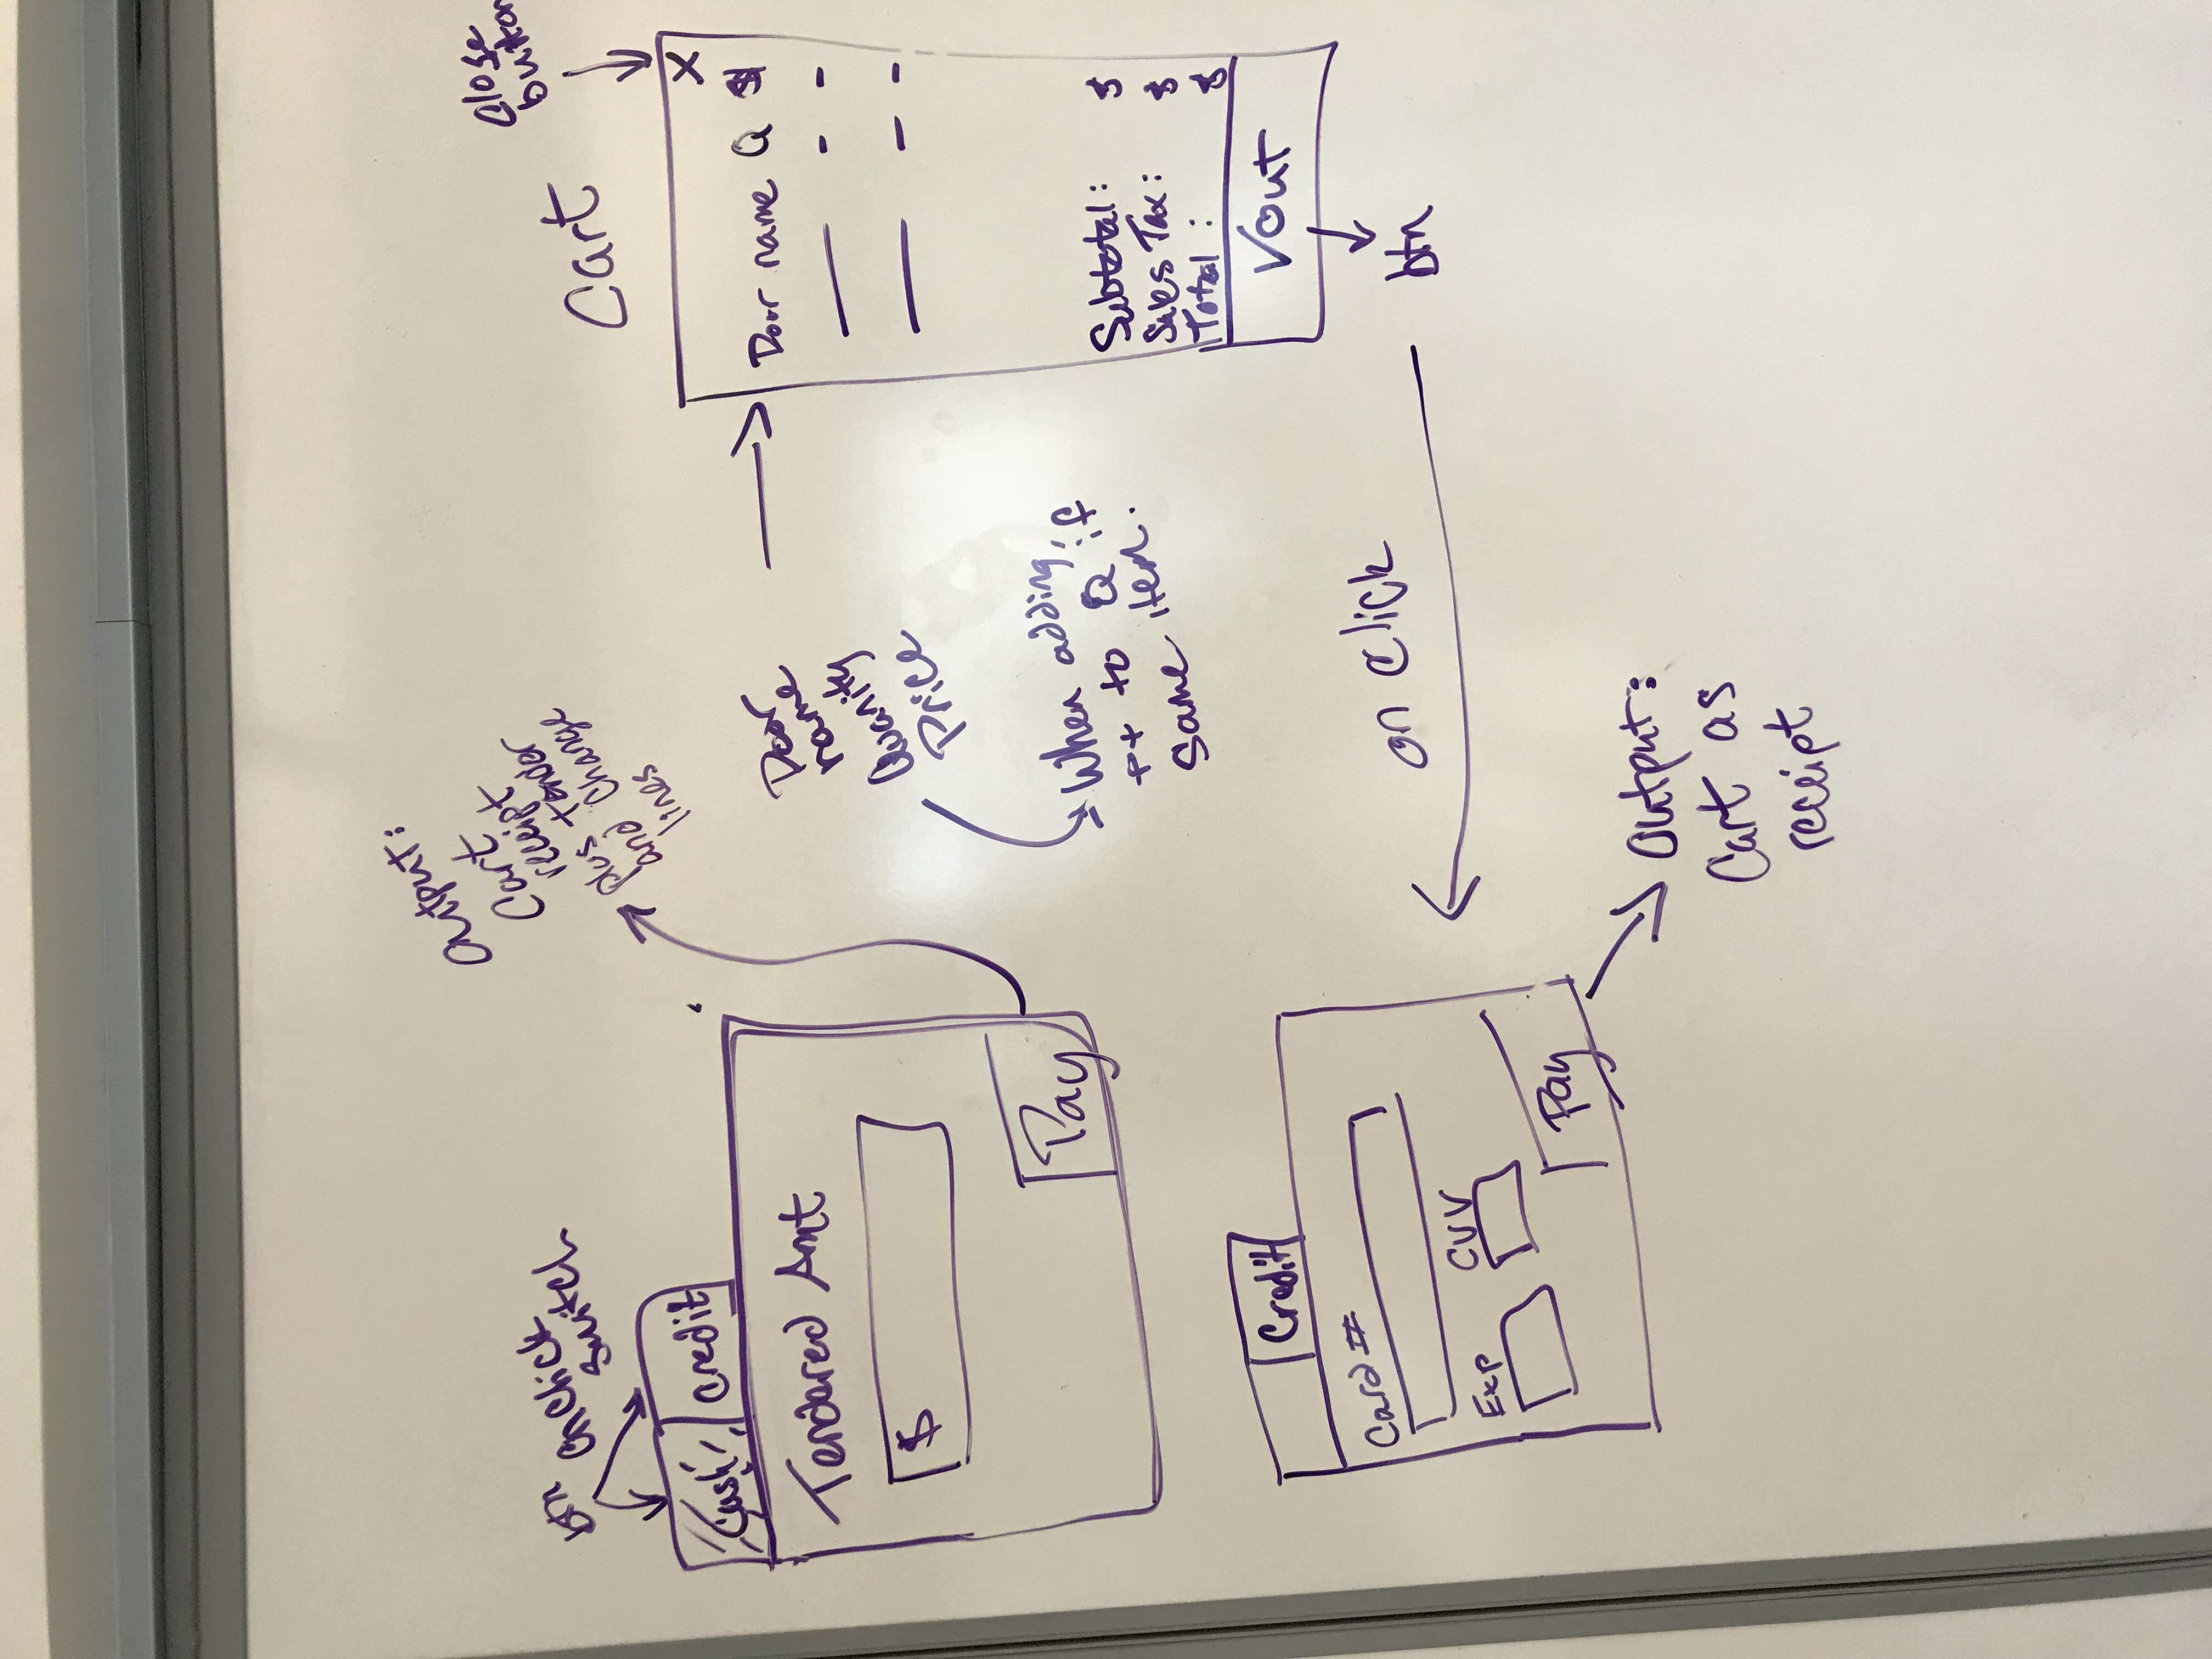 btn onclick
switch
Cash
Credit
Tendered Amt
$
Pay
Output:
Cart
receipt
plus tender
and change
lines
Door
name
Quanity
Price
When adding,
++ to Q if
same item.
Close
button
Cart
X
Door name Q $
Subtotal: $
Sales Tax: $
Total: $
✓out
btn
on click
Credit
Card #
Exp
CVV
Pay
Output:
Cart as
receipt